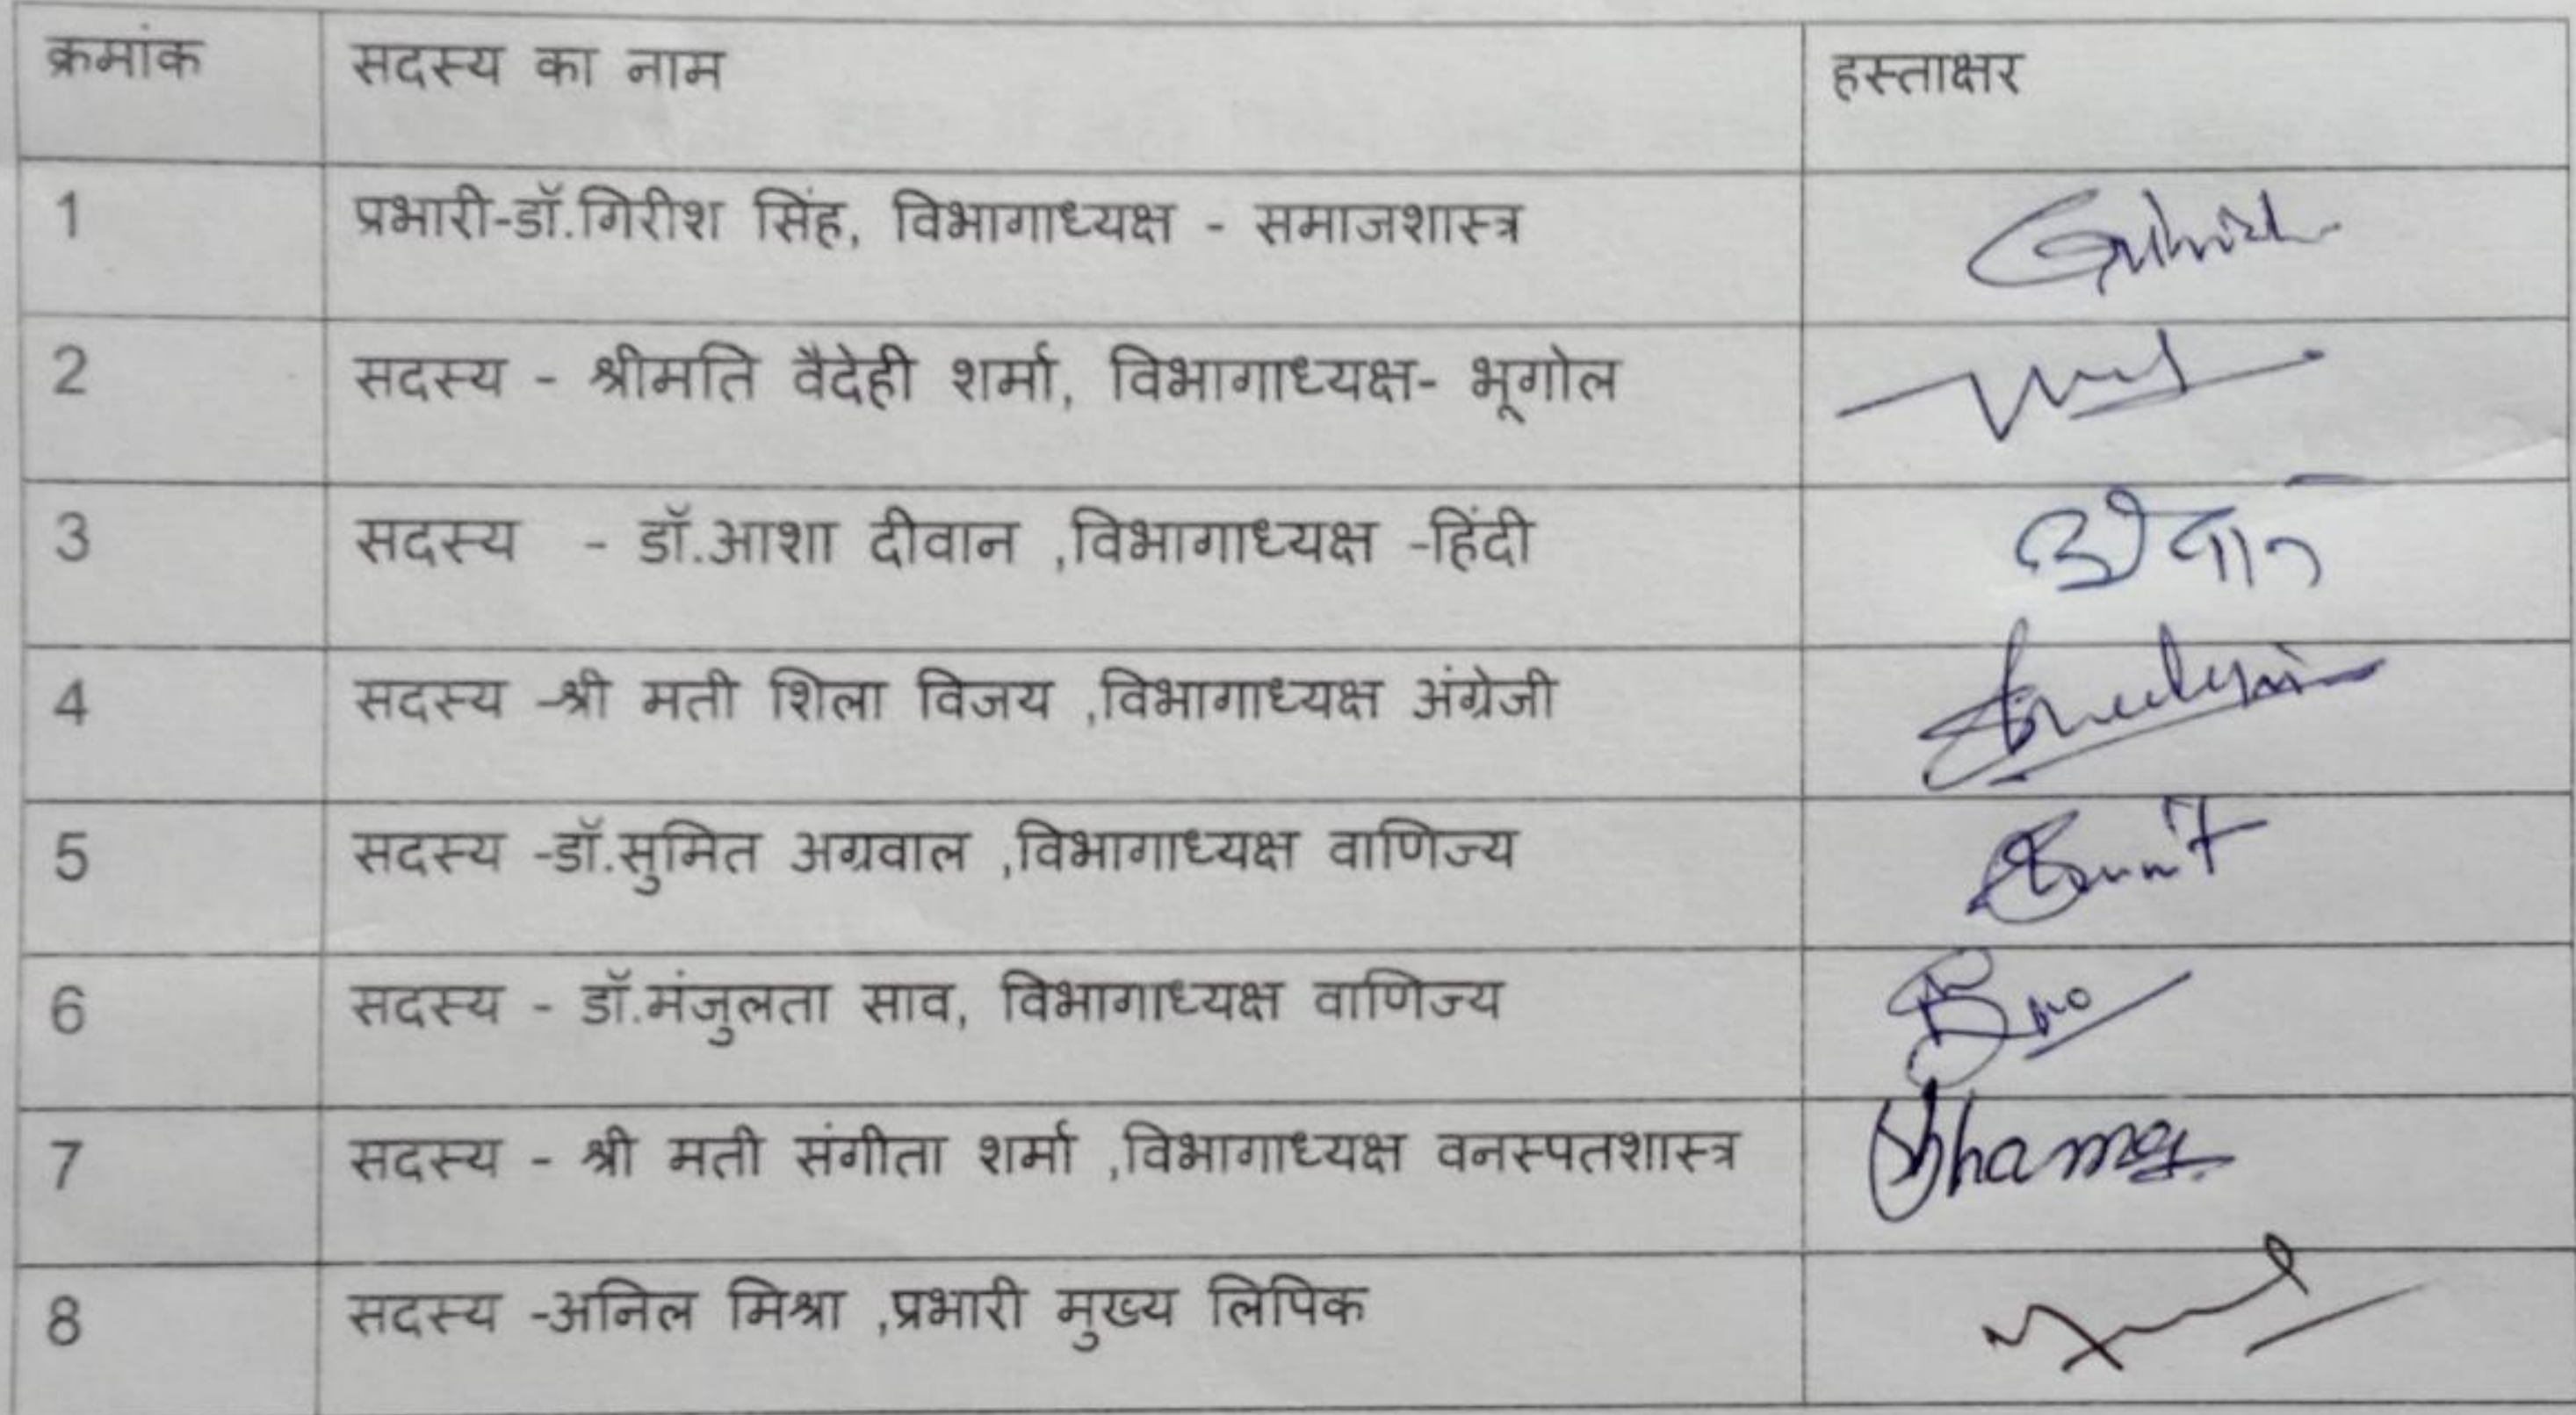 क्रमांक सदस्य का नाम हस्ताक्षर
1 प्रभारी-डॉ.गिरीश सिंह, विभागाध्यक्ष - समाजशास्त्र
2 सदस्य - श्रीमति वैदेही शर्मा, विभागाध्यक्ष- भूगोल
3 सदस्य - डॉ.आशा दीवान ,विभागाध्यक्ष -हिंदी
4 सदस्य -श्री मती शिला विजय ,विभागाध्यक्ष अंग्रेजी
5 सदस्य -डॉ.सुमित अग्रवाल ,विभागाध्यक्ष वाणिज्य
6 सदस्य - डॉ.मंजुलता साव, विभागाध्यक्ष वाणिज्य
7 सदस्य - श्री मती संगीता शर्मा ,विभागाध्यक्ष वनस्पतशास्त्र
8 सदस्य -अनिल मिश्रा ,प्रभारी मुख्य लिपिक